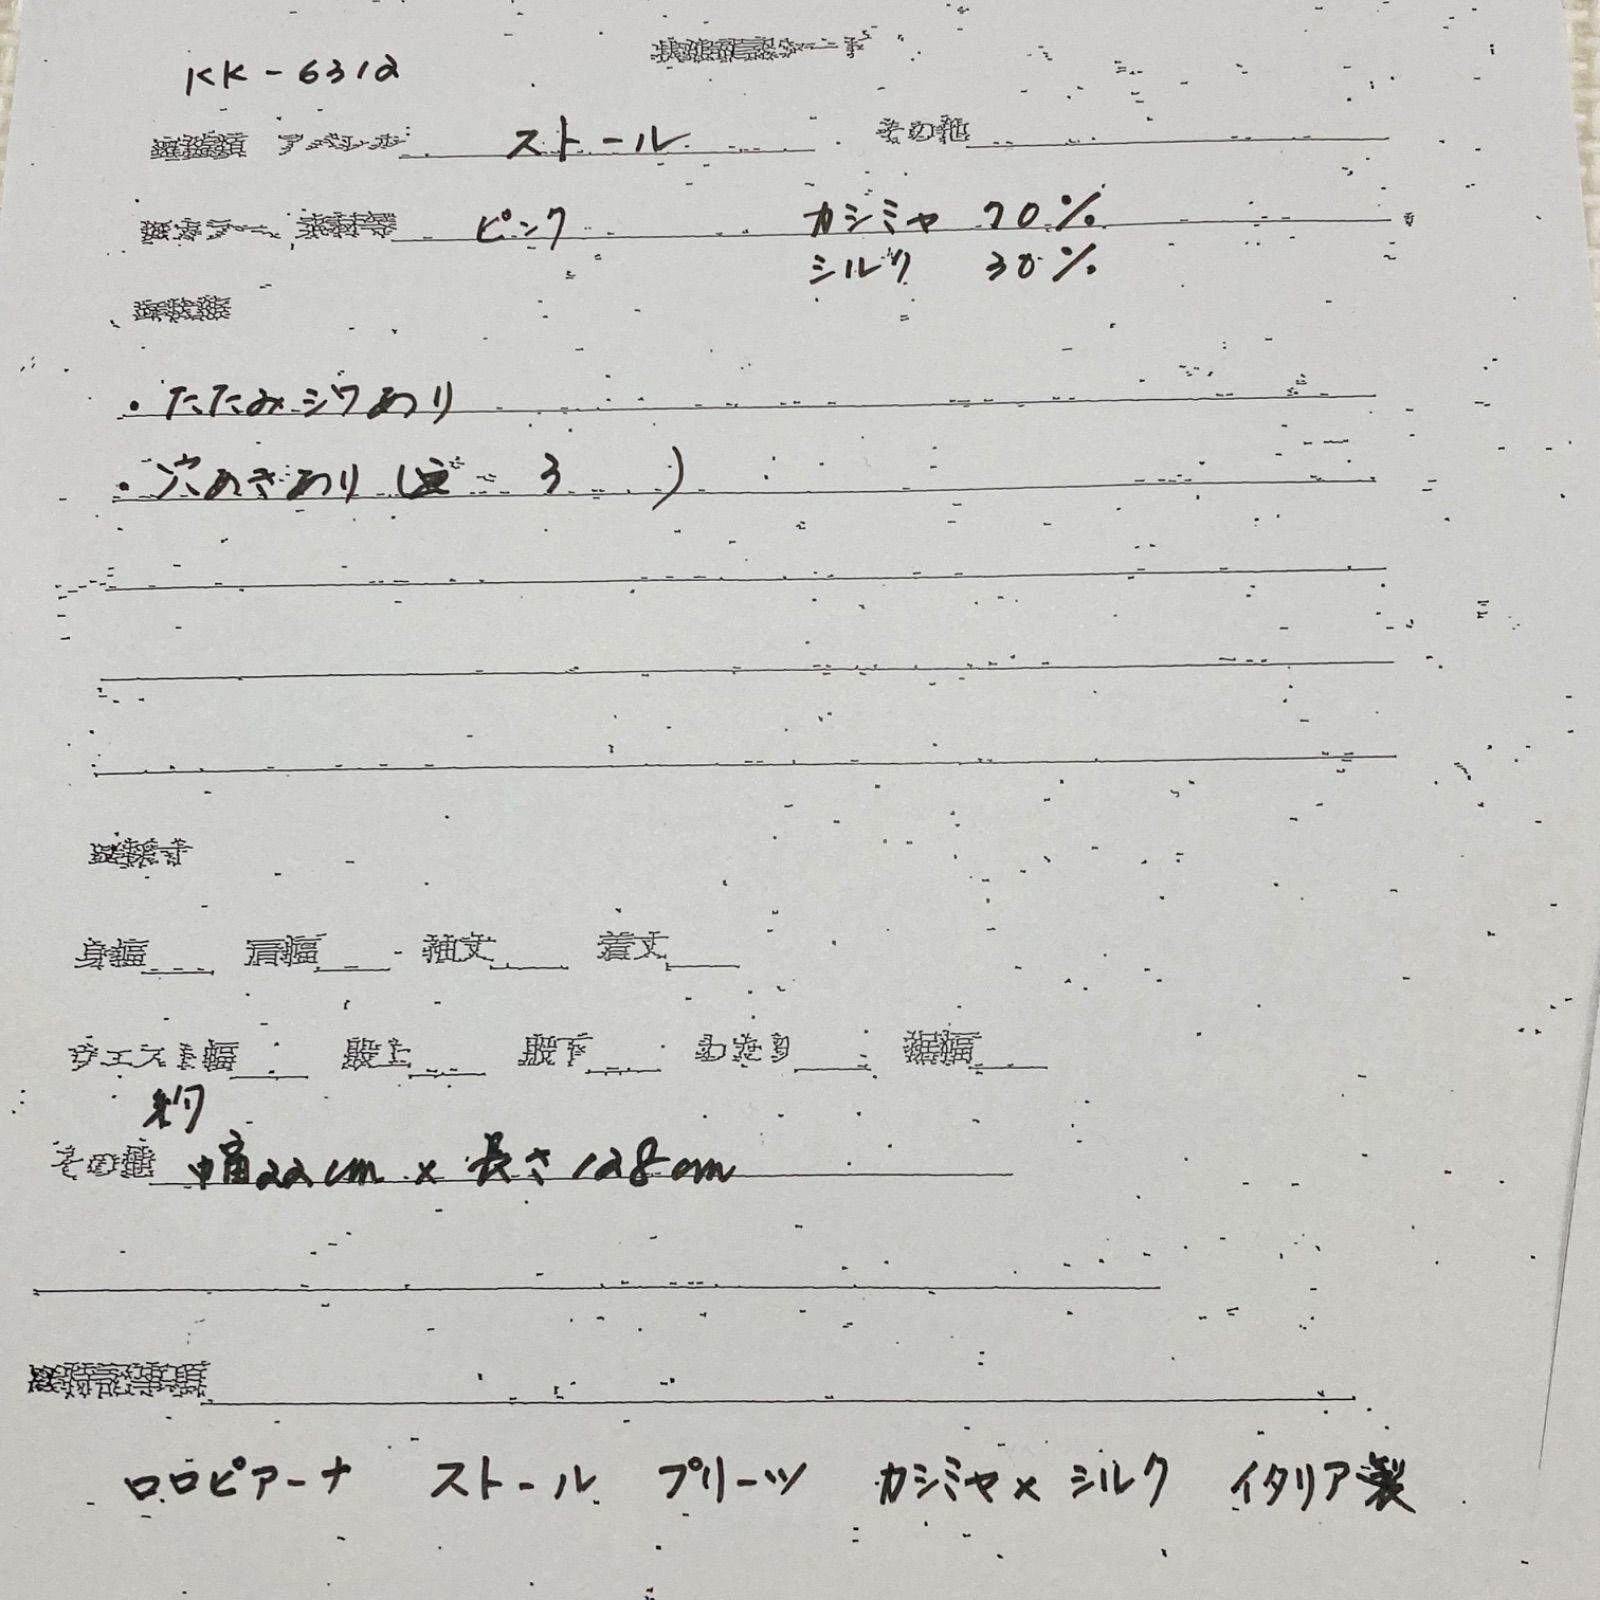 KK-6312
アパレル ストール その他
ピンク カシミヤ 70%
シルク 30%
・たたみジワあり
・穴あきあり( 3 )
身幅 肩幅 袖丈 着丈
ウエスト幅 股上 股下 わたり 裾幅
約
その他 幅22cm×長さ128cm
特記事項
ロロピアーナ ストール プリーツ カシミヤ×シルク イタリア製